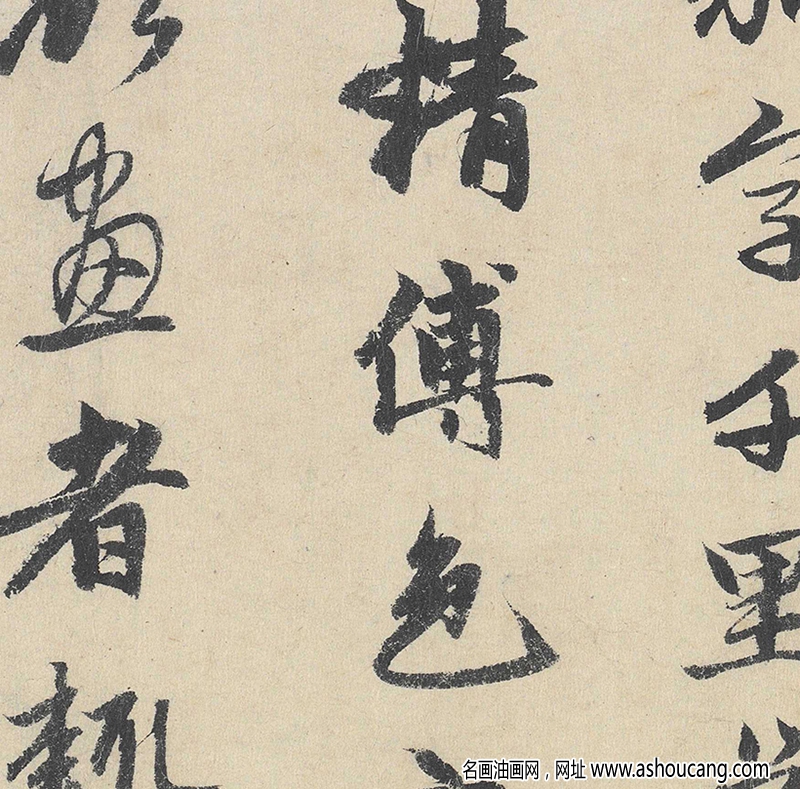 字千里
精傅色
畫者
名画油画网，网址 www.ashoucang.com